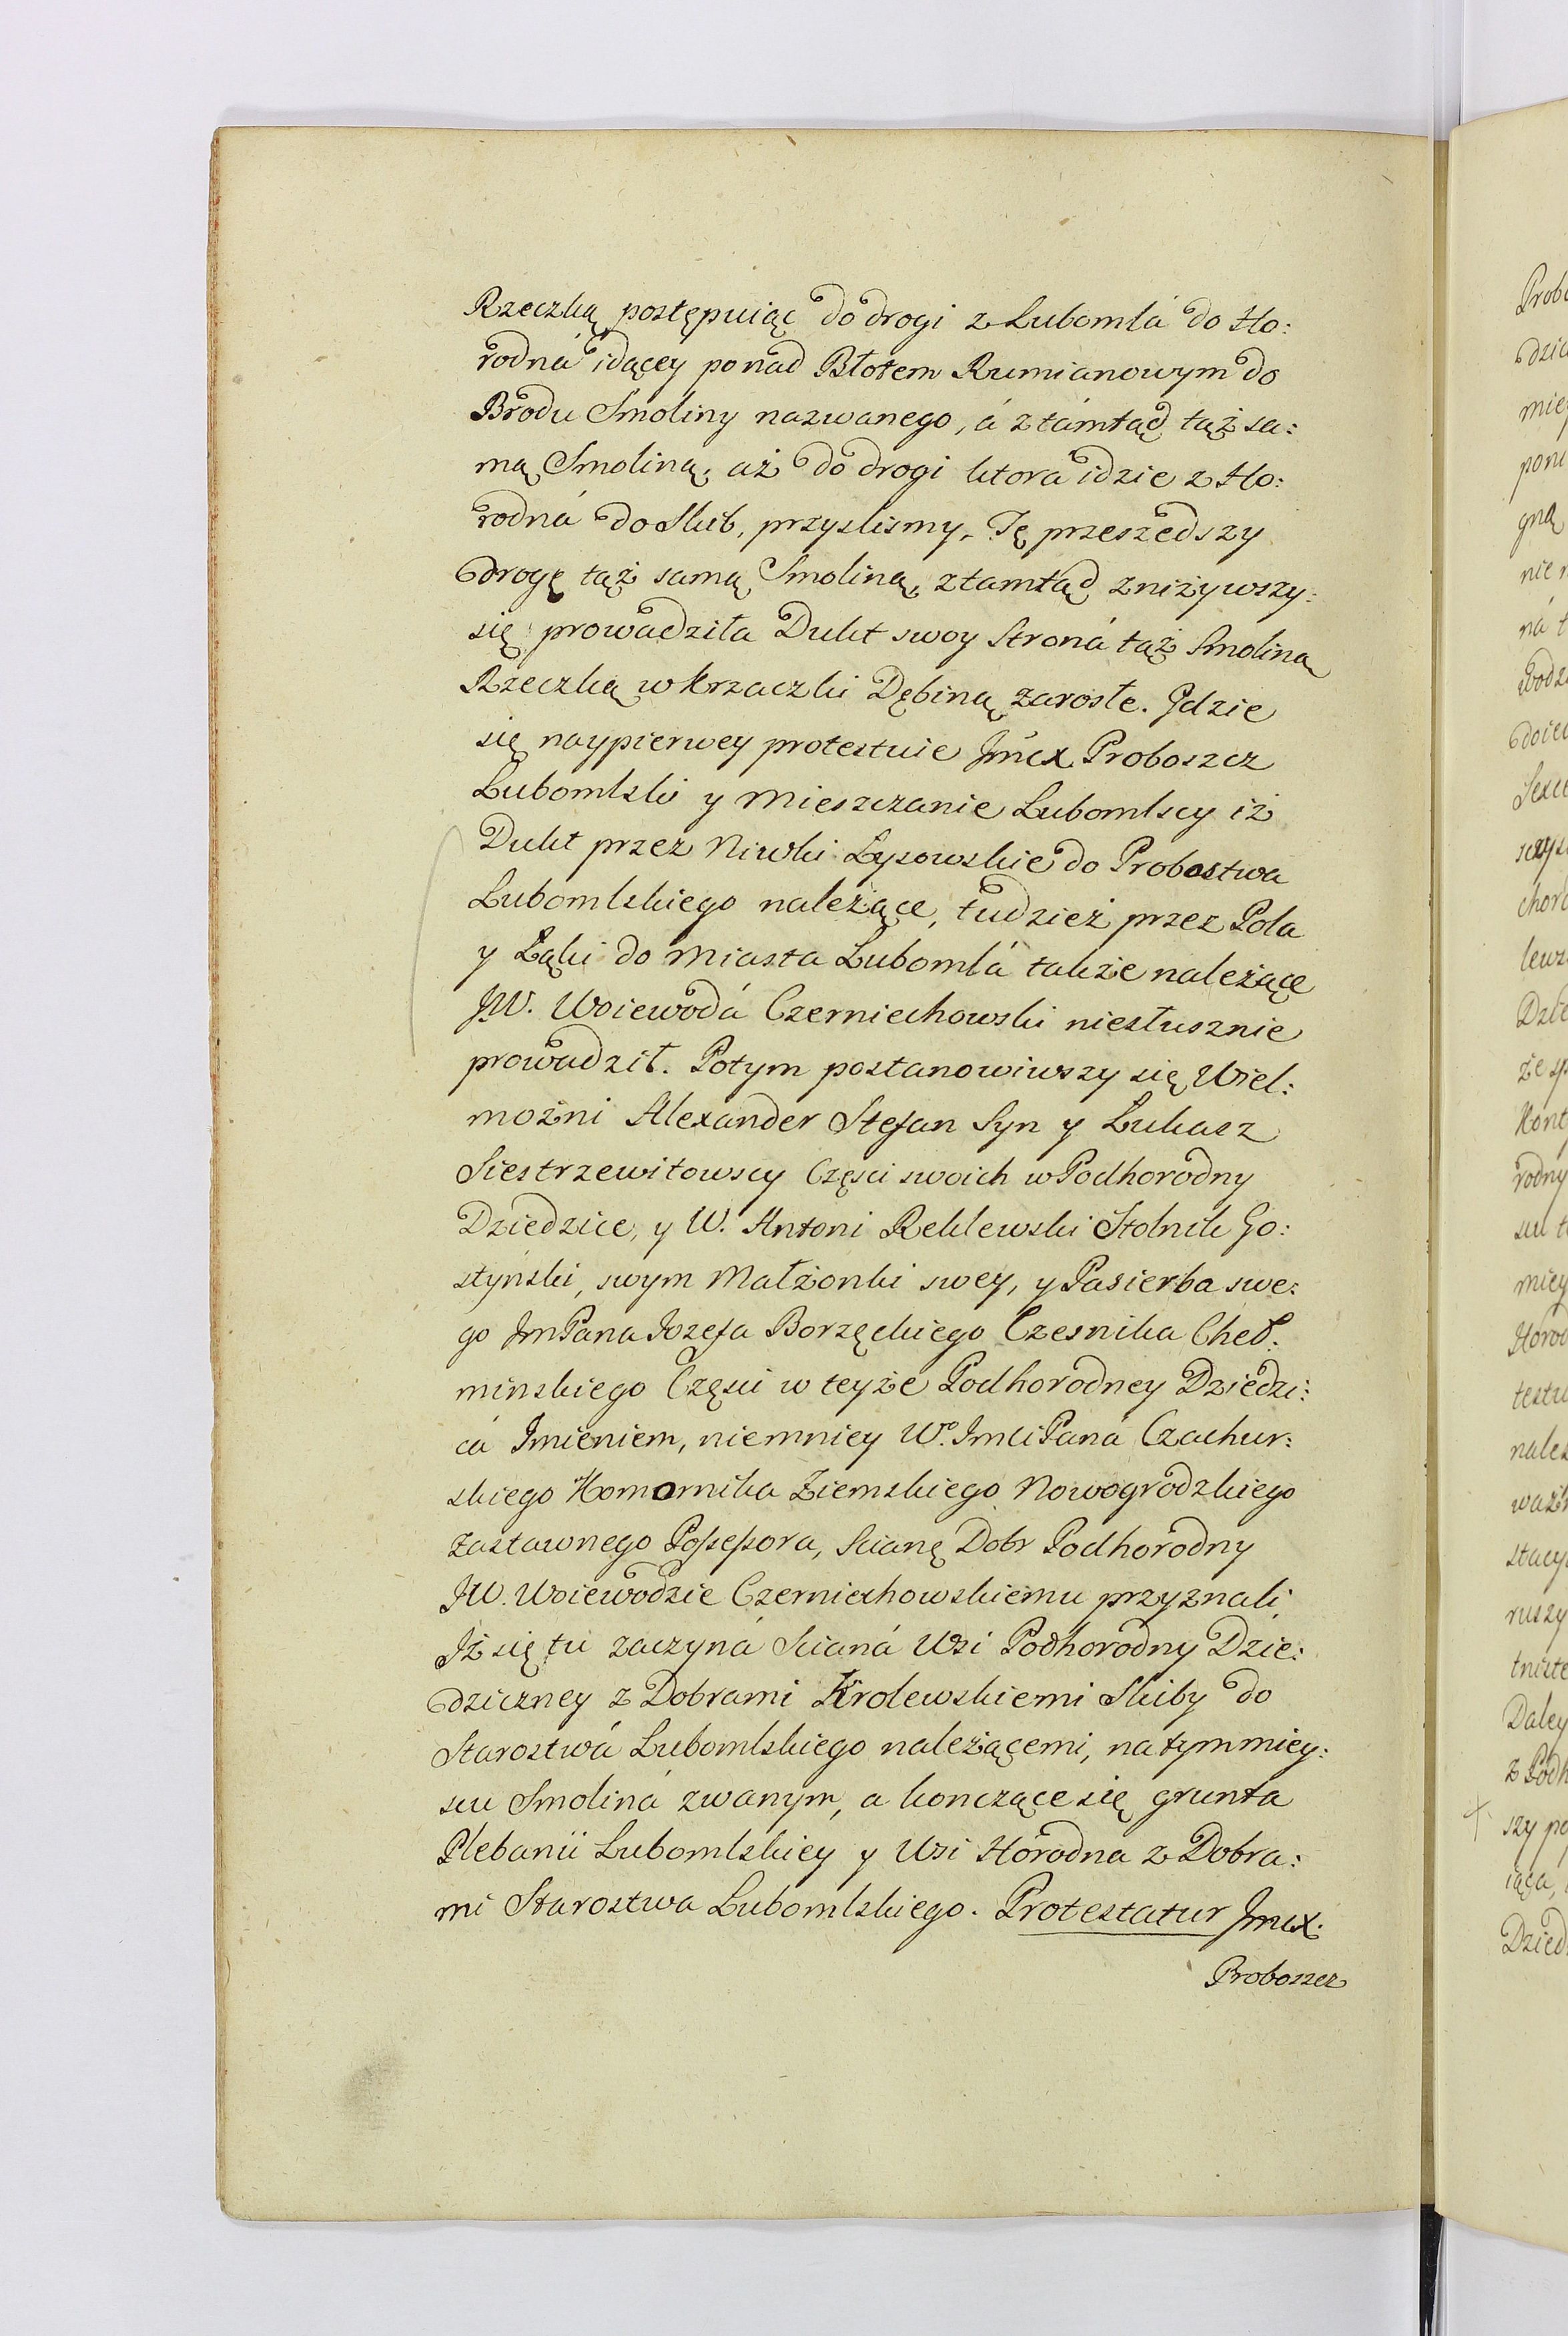 Rzeczką postępuiąc do drogi z Lubomlá do Ho:
rodná idącey ponad Błotem Rumianowym do
Brodu Smoliny nazwanego, á ztámtąd tąż sa:
mą Smoliną, aż do drogi ktora idzie z Ho:
rodná do Skib, przyslismy. Tę przeszedszy
drogę tąż samą Smoliną, ztamtąd zniżywszy:
się prowadziła Dukt swoy Stroná tąż Smoliną
Rzeczką w krzaczki Dębiną zarosłe. Gdzie
się naypierwey protestuie Jmcx Proboszcz
Lubomlski y Mieszczanie Lubomlscy iż
Dukt przez Niwki Łysowskie do Probostwa
Lubomlskiego należące, tudzież przez Pola
y Łąki do Miasta Lubomlá także należące
JW. Woiewodá Czerniechowski niesłusznie
prowadził. Potym postanowiwszy się Wiel:
możni Alexander Stefan Syn y Łukasz
Siestrzewitowscy Części swoich w Podhorodny
Dziedzice, y W. Antoni Reklewski Stolnik Go:
styński, swym Małżonki swey, y Pasierba swe:
go JmPana Jozefa Borzęckiego Czesnika Cheł:
minskiego Części w teyże Podhorodney Dziedzi:
cá Imieniem, niemniey Wº. JmciPaná Czachur:
skiego Komornika Ziemskiego Nowogrodzkiego
Zastawnego Possessora, Scianę Dobr Podhorodny
JW. Woiewodzie Czerniechowskiemu przyznali
Iż się tu zaczyná Scianá Wsi Podhorodny Dzie:
dziczney z Dobrami Krolewskiemi Skiby do
Starostwá Lubomlskiego należącemi, na tym miey:
scu Smoliná zwanym, a konczące się grunta
Plebanii Lubomlskiey y Wsi Horodna z Dobra:
mi Starostwa Lubomlskiego. Protestatur Jmcx.
Proboszcz